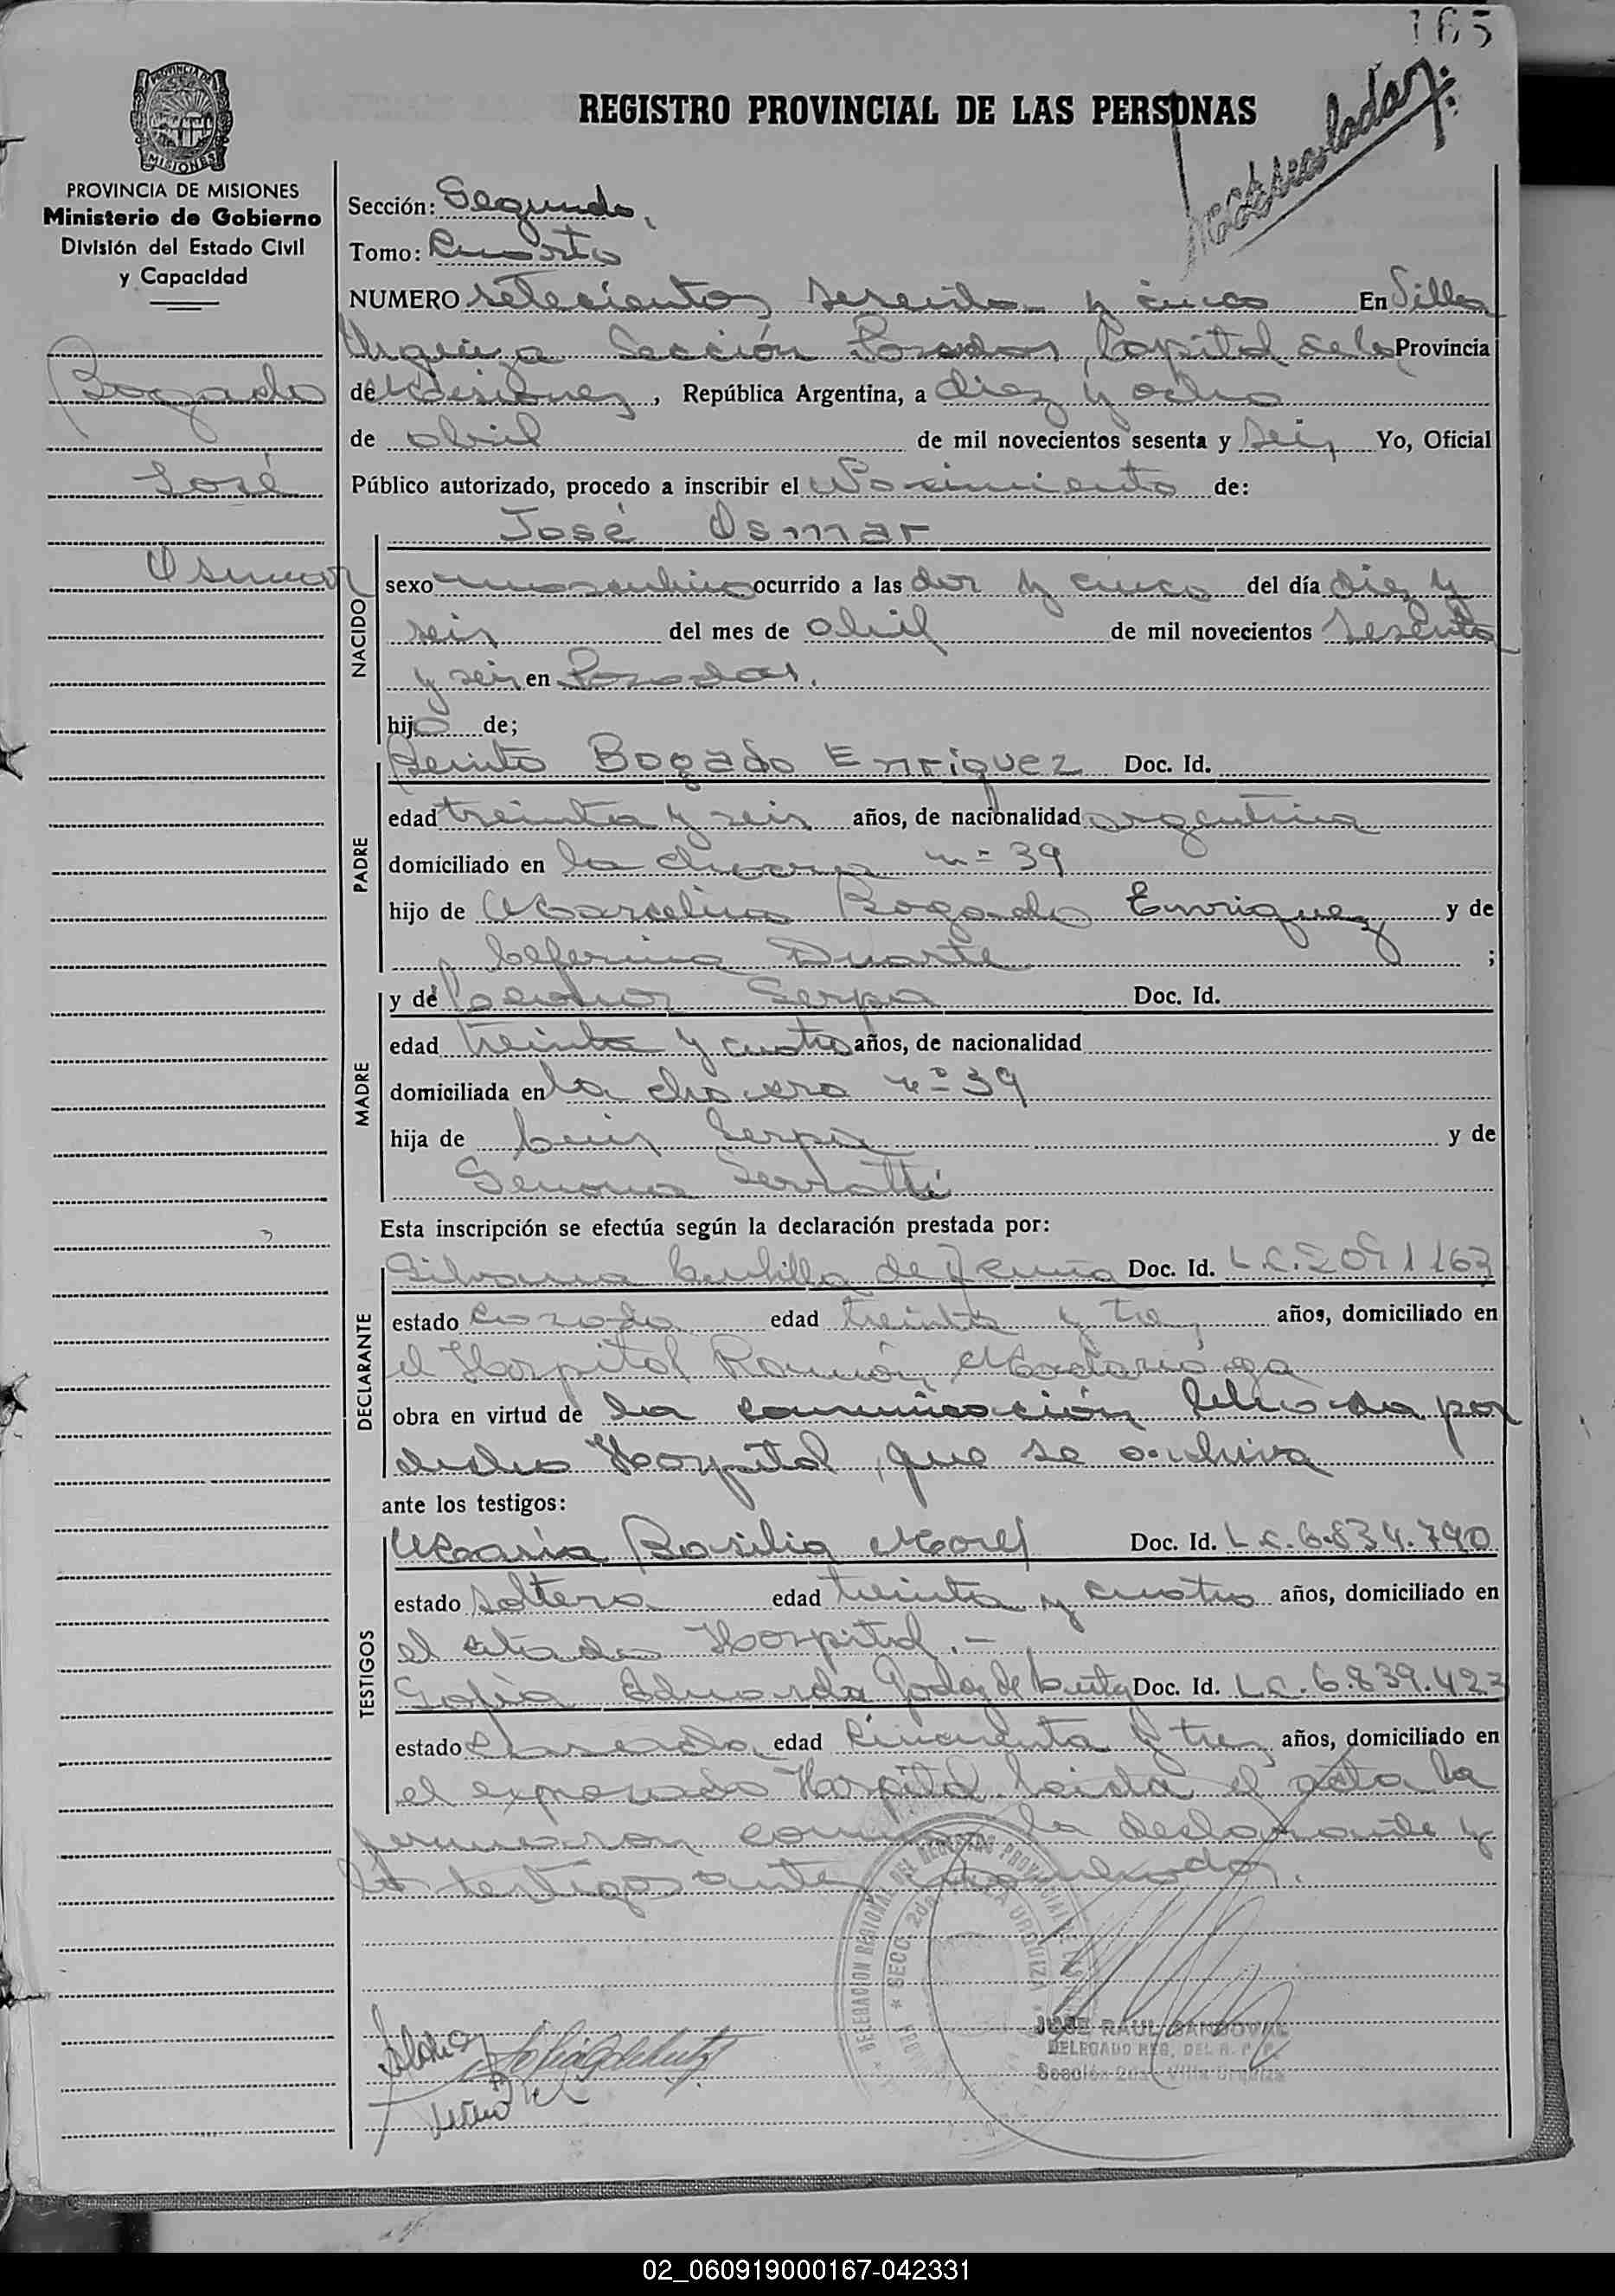 165
REGISTRO PROVINCIAL DE LAS PERSONAS
PROVINCIA DE MISIONES
Ministerio de Gobierno
División del Estado Civil
y Capacidad
Bogado
José
Osmar
Sección: Segunda,
Tomo: Cuarto
NUMERO setecientos sesenta y cinco En Villa
Urquiza Sección Posadas, Capital de la Provincia
de Misiones, República Argentina, a diez y ocho
de abril de mil novecientos sesenta y seis Yo, Oficial
Público autorizado, procedo a inscribir el Nacimiento de:
José Osmar
NACIDO
sexo masculino ocurrido a las dos y cinco del día diez y
seis del mes de abril de mil novecientos sesenta
y seis en Posadas.
hijo de;
PADRE
Benito Bogado Enriquez Doc. Id.
edad treinta y seis años, de nacionalidad argentina
domiciliado en la chacra nº 39
hijo de Marcelino Bogado Enriquez y de
Ceferina Duarte ;
MADRE
y de Leonor Serpa Doc. Id.
edad treinta y cuatro años, de nacionalidad
domiciliada en la chacra nº 39
hija de Luis Serpa y de
Genova
Esta inscripción se efectúa según la declaración prestada por:
DECLARANTE
Silvana de Doc. Id. L.C. 2091163
estado casada edad treinta y tres años, domiciliado en
el Hospital Ramón Madariaga
obra en virtud de la comunicación labrada por
dicho Hospital, que se archiva
ante los testigos:
TESTIGOS
María Basilia Morel Doc. Id. L.C. 6.834.790
estado soltera edad treinta y cuatro años, domiciliado en
el citado Hospital.-
Sofía Eduarda Godoy de Doc. Id. L.C. 6.839.423
estado casada edad cincuenta y tres años, domiciliado en
el expresado Hospital. Leida el acta la
firmaron conmigo la declarante y
los testigos antes
DELEGACION REGIONAL DEL REGISTRO PROVINCIAL DE LAS
* SECC. 2da. VILLA URQUIZA *
JOSE RAUL SANDOVAL
DELEGADO REG. DEL R. P. P.
Sección 2da. Villa Urquiza
02_060919000167-042331